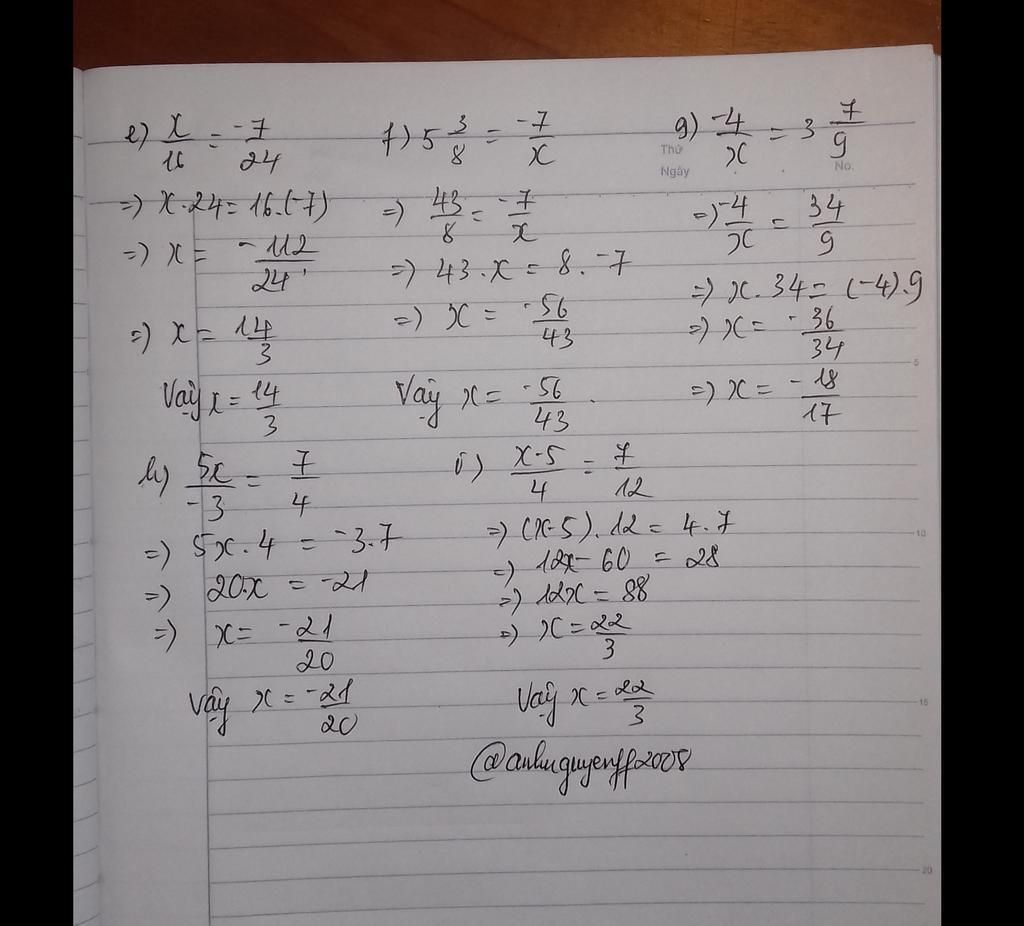 e) x/16 = -7/24
=) x.24 = 16.(-7)
=) x = -112/24
=) x = 14/3
Vậy x = 14/3
f) 5 3/8 = -7/x
=) 43/8 = -7/x
=) 43.x = 8.-7
=) x = -56/43
Vậy x = -56/43.
g) -4/x = 3 7/9
Thứ
Ngày
No.
=) -4/x = 34/9
=) x.34 = (-4).9
=) x = -36/34
=) x = -18/17
h) 5x/-3 = 7/4
=) 5x.4 = -3.7
=) 20.x = -21
=) x = -21/20
Vậy x = -21/20
i) x-5/4 = 7/12
=) (x-5).12 = 4.7
=) 12x - 60 = 28
=) 12x = 88
=) x = 22/3
Vậy x = 22/3
@anhnguyenff2008
5
10
15
20